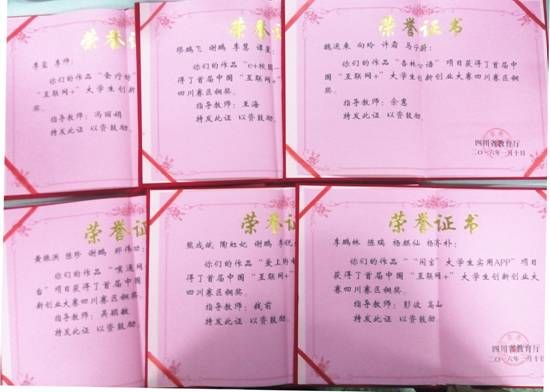 荣誉证
李 李帅:
你们的作品
"互联网+" 大
奖。
指导教师: 冯丽娟
特发此证 以资鼓励
荣誉证
陈鹏飞 谢鹏 李慧
你们的作品
得了首届中国 "互联网
赛区铜奖。
指导教师: 王海
特发此证 以资鼓励
荣誉证书
向玲 许霜
你们的作品 "杏林 语" 项目获得了首届
中国 "互联网+" 大学生创新创业大赛四川
赛区铜奖。
指导教师: 余惠
特发此证 以资鼓励。
四川省教育厅
二〇一六年一月十日
荣誉证
陈珍 谢鹏
你们的作品
台" 项目获得了首届中国
新创业大赛四川赛区铜奖
指导教师: 吴麒敏
特发此证 以资鼓励
荣誉证书
熊成斌 陶虹妃 谢鹏
你们的作品 "爱上
得了首届中国 "互联网+
四川赛区铜奖。
指导教师: 钱前
特发此证 以资鼓励。
荣誉证书
李鹏林 陈瑞 杨颖仙
你们的作品 " 宝" 大学生实用APP" 项目
获得了首届中国 "互联网+" 大学生创新创业大
赛四川赛区铜奖。
指导教师: 彭波 高山
特发此证 以资鼓励。
四川省教育厅
二〇一六年一月十日